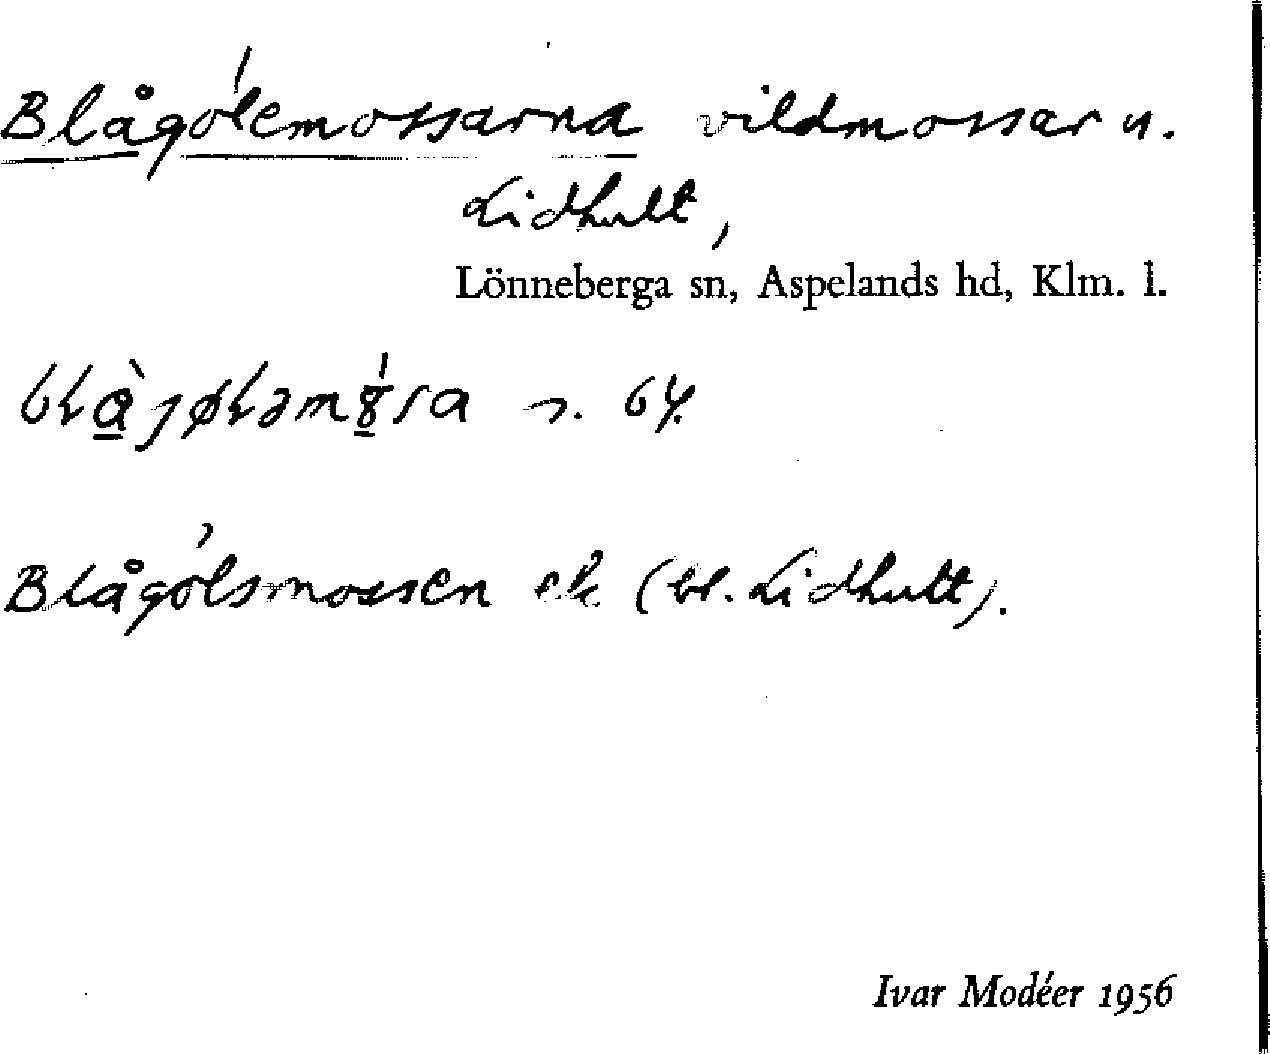 Blågölemossarna vildmossar u.
Lidhult,
Lönneberga sn, Aspelands hd, Klm. l.
Blågölsmossen ek (bl. Lidhult).
Ivar Modéer 1956